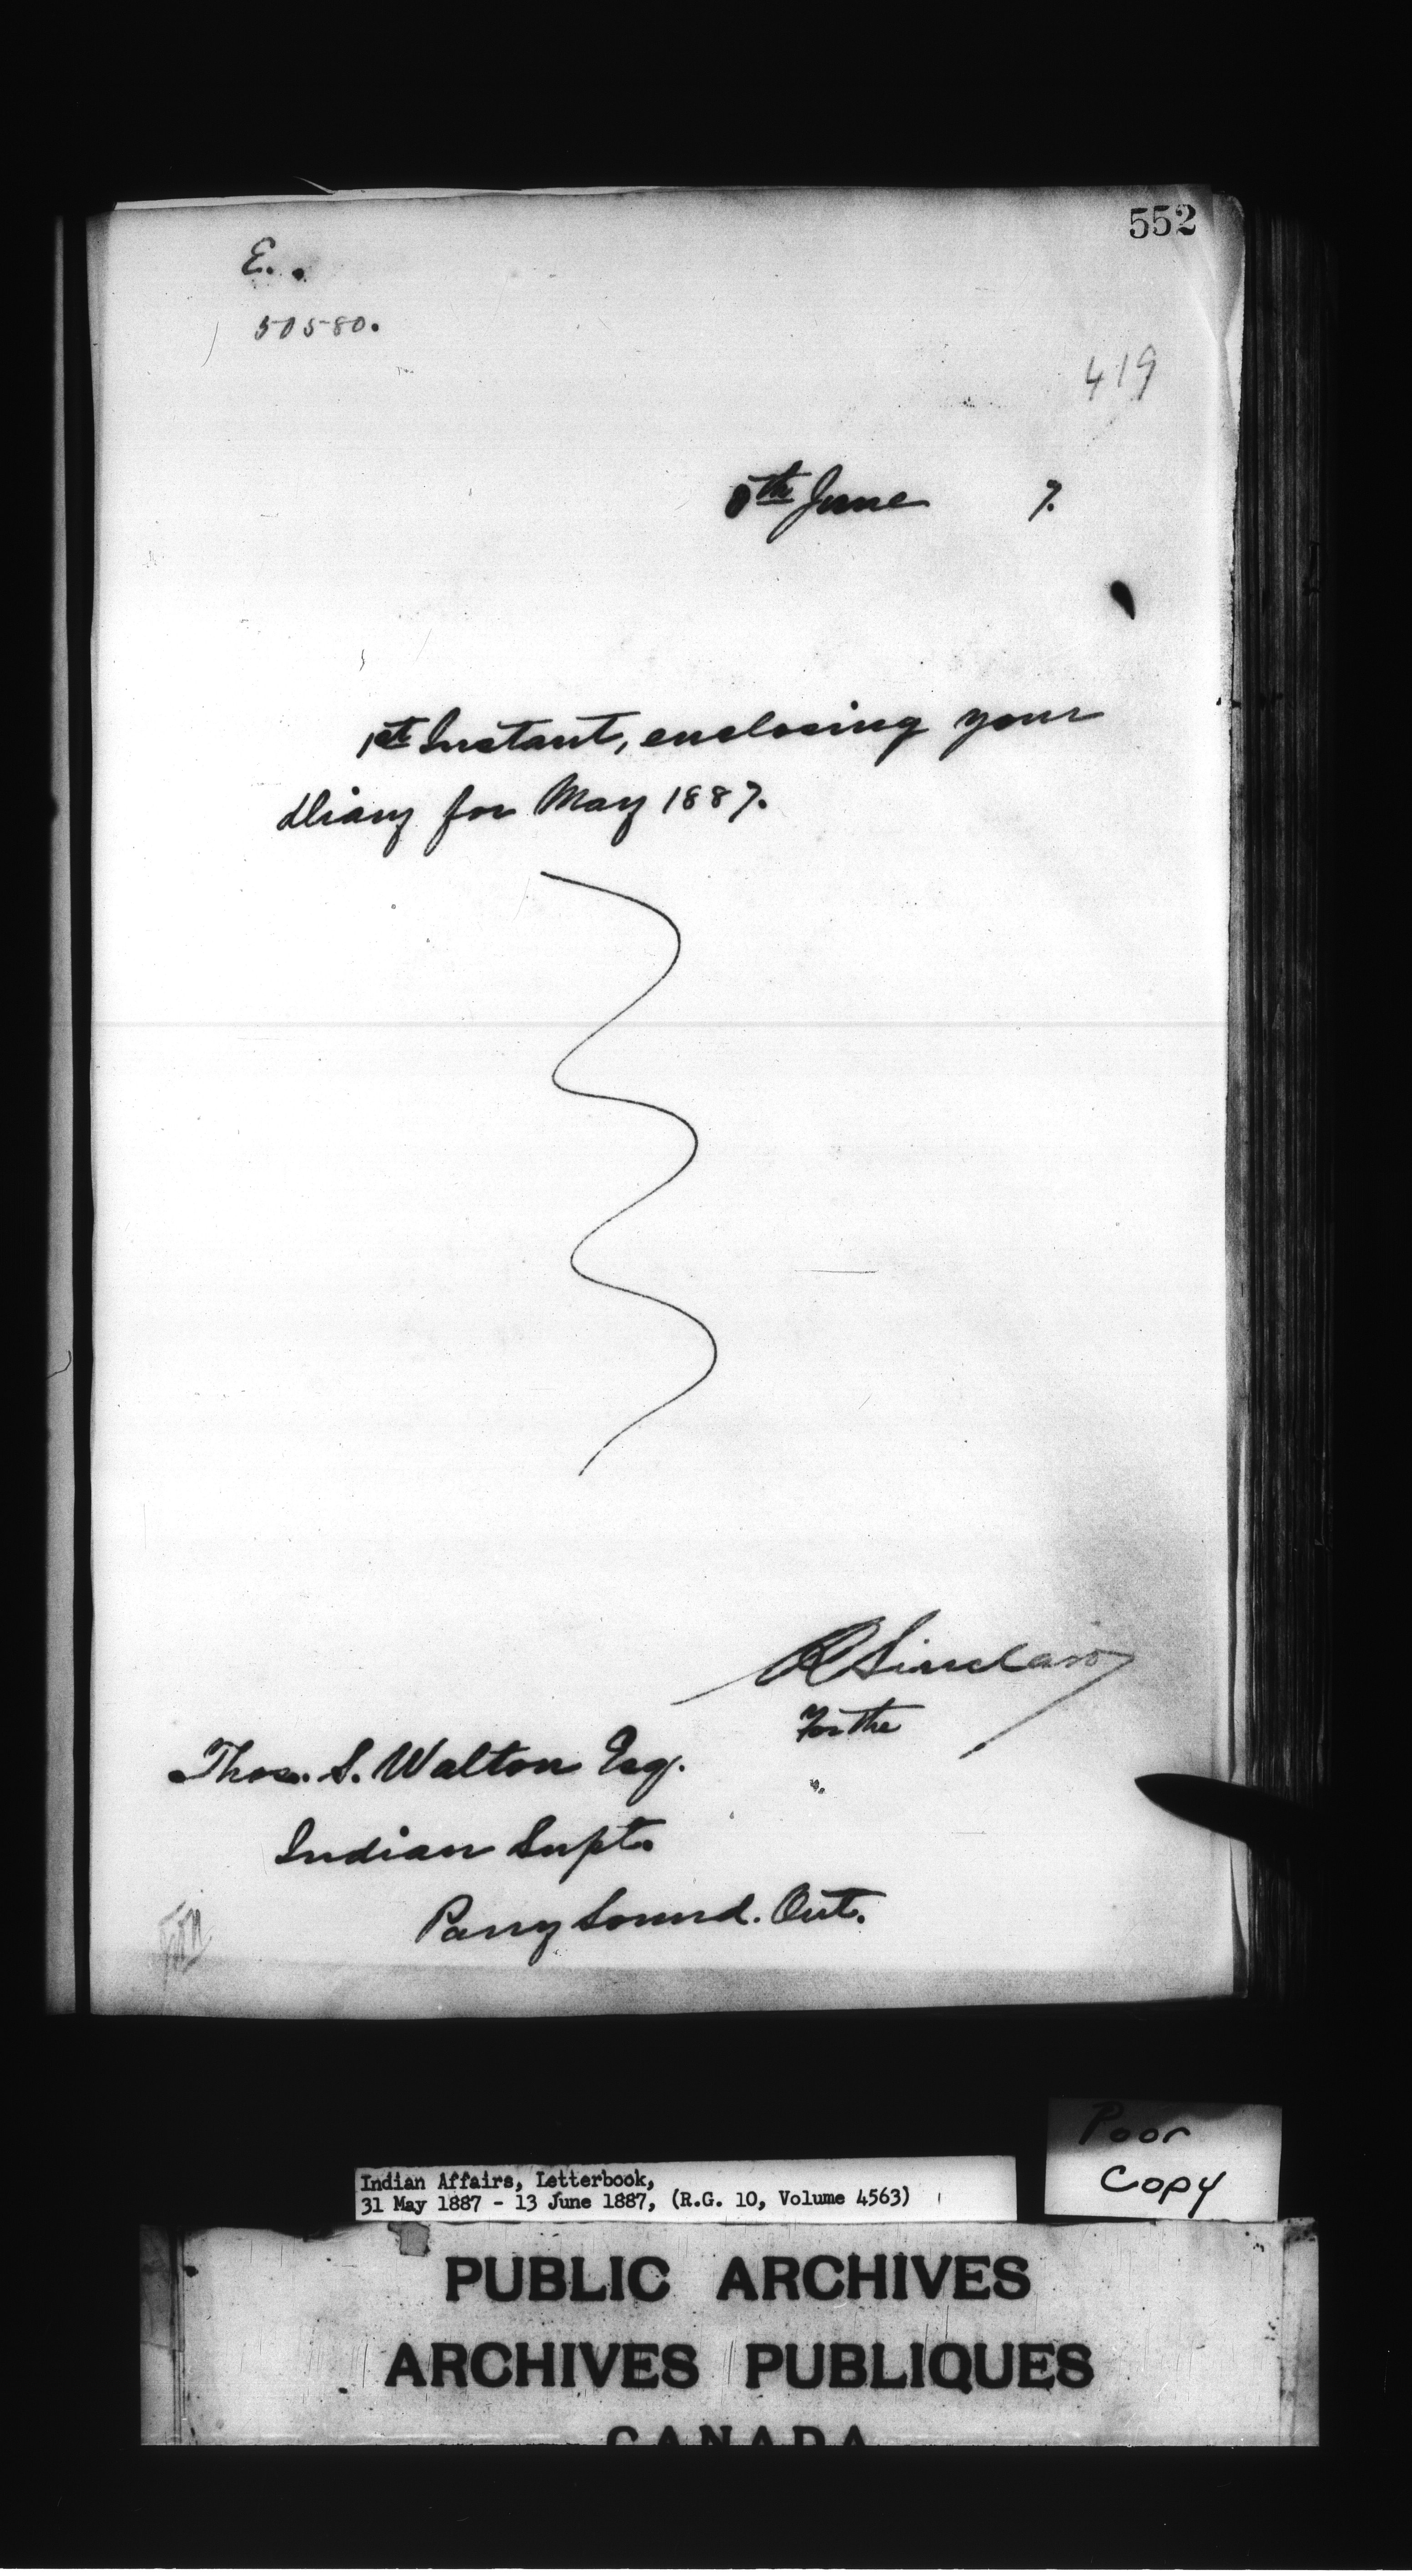 552
E.
50580.
419
th June 7.
1st Instant, enclosing your
diary for May 1887.
R Sinclair
For the
Thos. S. Walton Esq.
Indian Supt.
Parry Sound. Ont.
Poor
Copy
Indian Affairs, Letterbook,
31 May 1887 - 13 June 1887, (R.G. 10, Volume 4563)
PUBLIC ARCHIVES
ARCHIVES PUBLIQUES
CANADA